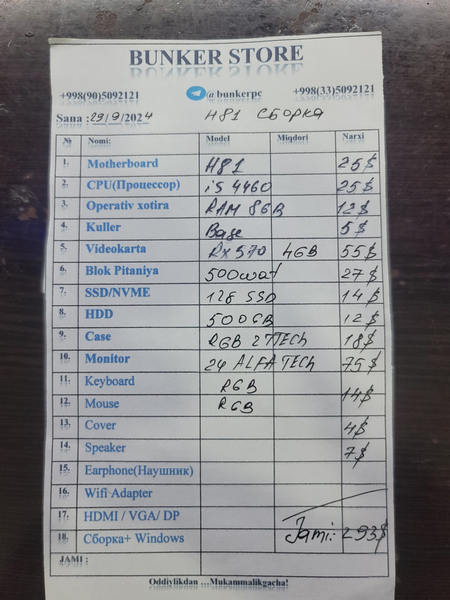 BUNKER STORE
+998(90)5092121 @bunkerpc +998(33)5092121
Sana : 29/9/2024 H81 СБОРКА
№ Nomi: Model Miqdori Narxi
1. Motherboard H81 25$
2. CPU(Процессор) i5 4460 25$
3. Operativ xotira RAM 8GB 12$
4. Kuller Base 5$
5. Videokarta RX 570 4GB 55$
6. Blok Pitaniya 500wat 27$
7. SSD/NVME 128 SSD 14$
8. HDD 500GB 12$
9. Case RGB 2TTECh 18$
10. Monitor 24 ALFA TECH 75$
11. Keyboard RGB
12. Mouse RGB 14$
13. Cover 4$
14. Speaker 7$
15. Earphone(Наушник)
16. Wifi Adapter
17. HDMI / VGA/ DP
18. Сборка+ Windows Jami: 293$
JAMI :
Oddiylikdan ...Mukammalikgacha!